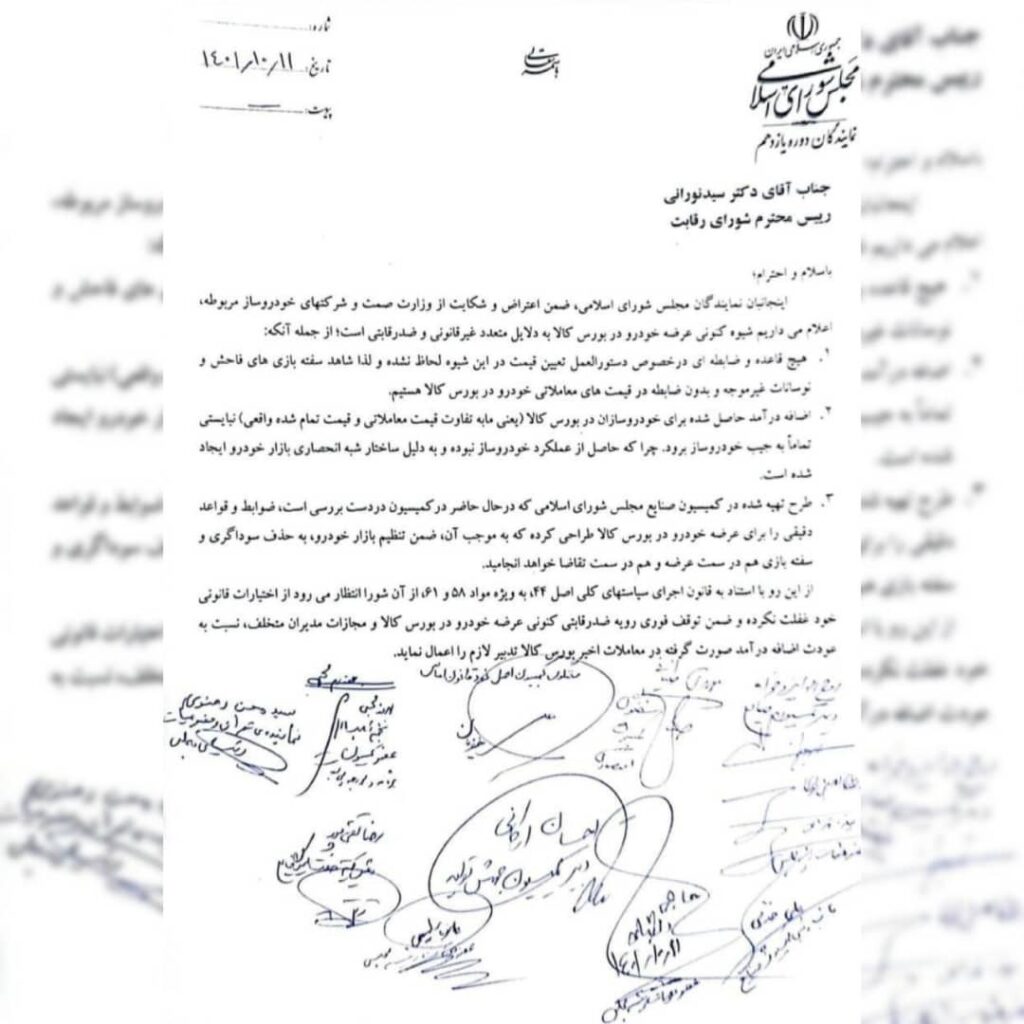 جمهوری اسلامی ایران
مجلس شورای اسلامی
نمایندگان دوره یازدهم
بسمه تعالی
شماره:
تاریخ: ۱۴۰۱/۱۰/۱۱
پیوست:
جناب آقای دکتر سیدنورانی
رییس محترم شورای رقابت
باسلام و احترام؛
اینجانبان نمایندگان مجلس شورای اسلامی، ضمن اعتراض و شکایت از وزارت صمت و شرکتهای خودروساز مربوطه،
اعلام می داریم شیوه کنونی عرضه خودرو در بورس کالا به دلایل متعدد غیرقانونی و ضدرقابتی است؛ از جمله آنکه:
۱. هیچ قاعده و ضابطه ای درخصوص دستورالعمل تعیین قیمت در این شیوه لحاظ نشده و لذا شاهد سفته بازی های فاحش و
نوسانات غیرموجه و بدون ضابطه در قیمت های معاملاتی خودرو در بورس کالا هستیم.
۲. اضافه درآمد حاصل شده برای خودروسازان در بورس کالا (یعنی مابه تفاوت قیمت معاملاتی و قیمت تمام شده واقعی) نبایستی
تماماً به جیب خودروساز برود. چرا که حاصل از عملکرد خودروساز نبوده و به دلیل ساختار شبه انحصاری بازار خودرو ایجاد
شده است.
۳. طرح تهیه شده در کمیسیون صنایع مجلس شورای اسلامی که درحال حاضر درکمیسیون دردست بررسی است، ضوابط و قواعد
دقیقی را برای عرضه خودرو در بورس کالا طراحی کرده که به موجب آن، ضمن تنظیم بازار خودرو، به حذف سوداگری و
سفته بازی هم در سمت عرضه و هم در سمت تقاضا خواهد انجامید.
از این رو با استناد به قانون اجرای سیاستهای کلی اصل ۴۴، به ویژه مواد ۵۸ و ۶۱، از آن شورا انتظار می رود از اختیارات قانونی
خود غفلت نکرده و ضمن توقف فوری رویه ضدرقابتی کنونی عرضه خودرو در بورس کالا و مجازات مدیران متخلف، نسبت به
عودت اضافه درآمد صورت گرفته در معاملات اخیر بورس کالا تدبیر لازم را اعمال نماید.
احسان ارکانی
رضا تقی پور
۱۴۰۱/۱۰/۱۱